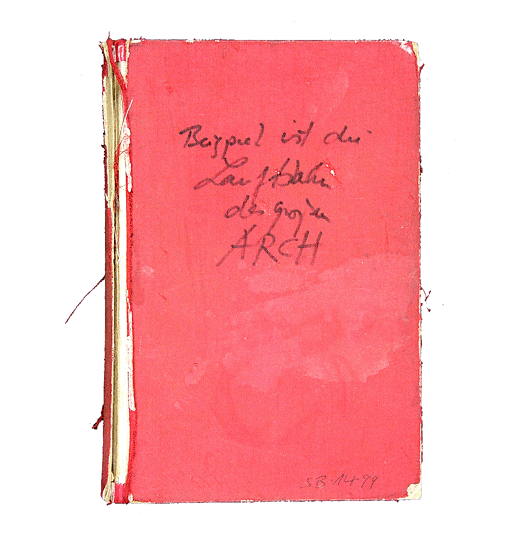 Beispiel ist die
Laufbahn
des großen
ARCH
SB-14-99